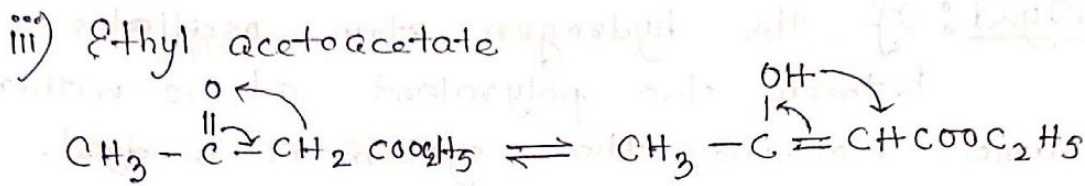 iii) Ethyl acetoacetate
O OH
|| |
CH3 - C - CH2 COOC2H5 ⇌ CH3 - C = CHCOOC2H5